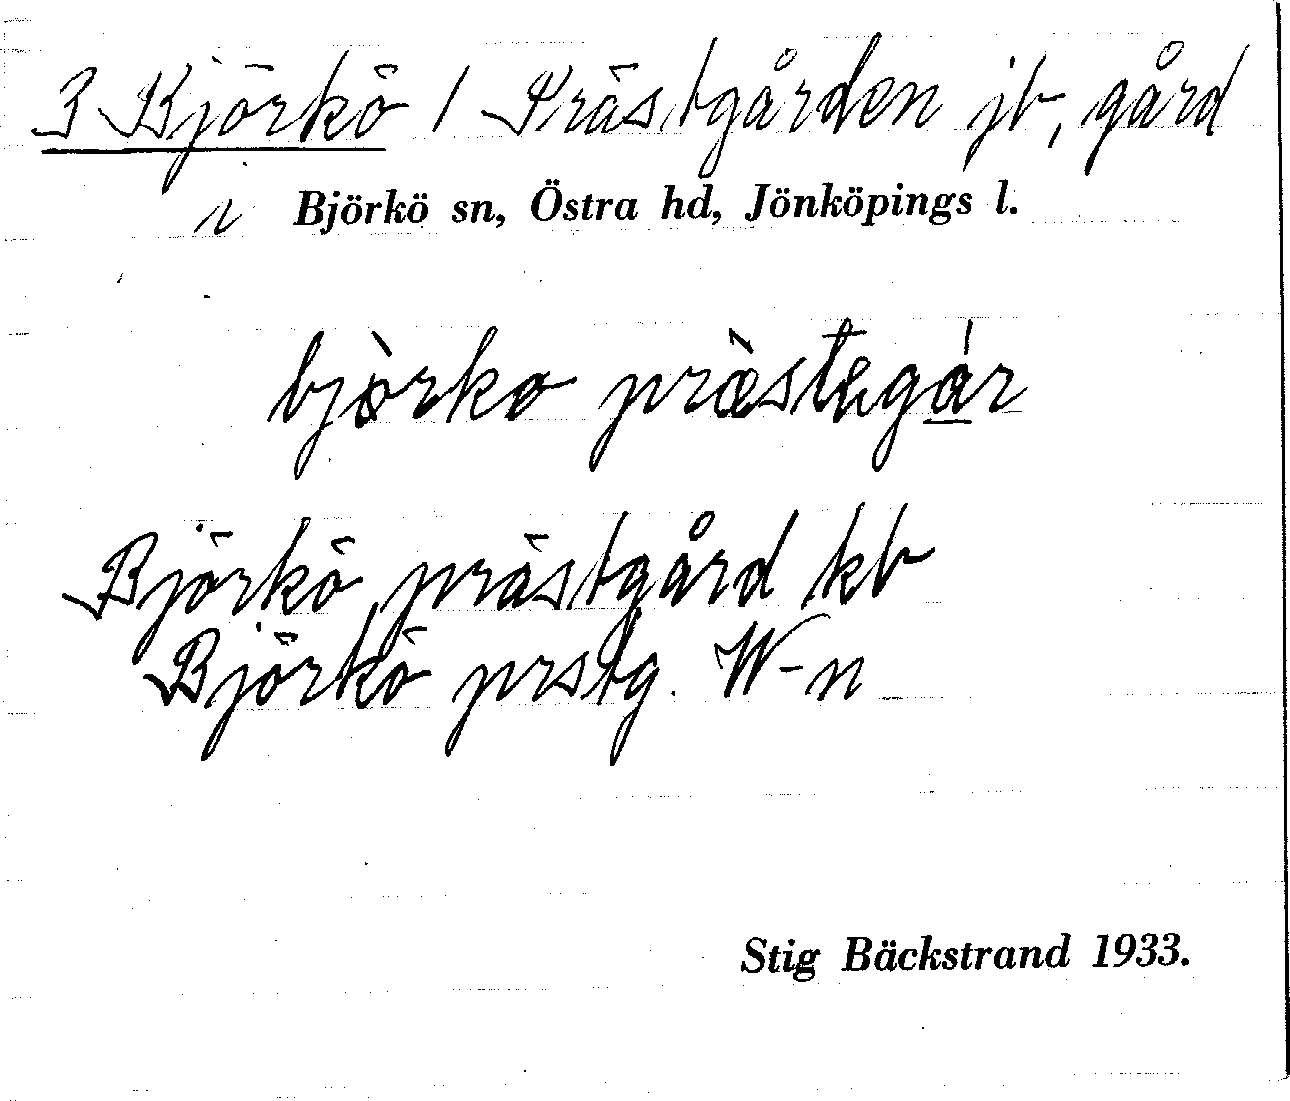 3 Björkö / Prästgården jb, gård
i Björkö sn, Östra hd, Jönköpings l.
bjòrko præ̀stegár
Björkö prästgård kb
Björkö prstg. W-n
Stig Bäckstrand 1933.